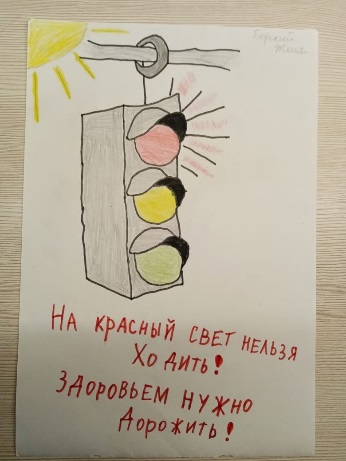 Женя
НА КРАСНЫЙ СВЕТ НЕЛЬЗЯ
ХОДИТЬ!
ЗДОРОВЬЕМ НУЖНО
ДОРОЖИТЬ!